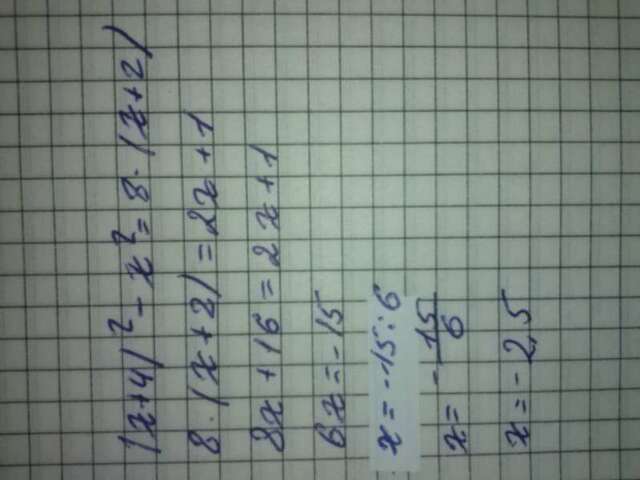 (x+4)² - x² = 8·(x+2)
8·(x+2) = 2x+1
8x+16 = 2x+1
6x = -15
x = -15:6
x = -15/6
x = -2,5